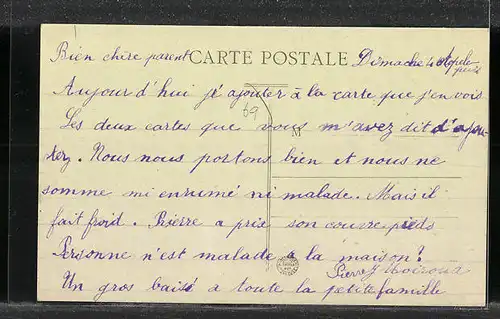 Bien chère parent CARTE POSTALE Dimache 4
Aujourd'hui j'é ajouter à la carte que j'en vois
69
Les deux cartes que vous m'avez dit d'ajou
M
tez. Nous nous portons bien et nous ne
somme ni enrumé ni malade. Mais il
fait froid. Pierre a pris son couvre pieds
Personne n'est malade a la maison?
Pierre
Un gros baisé a toute la petite famille